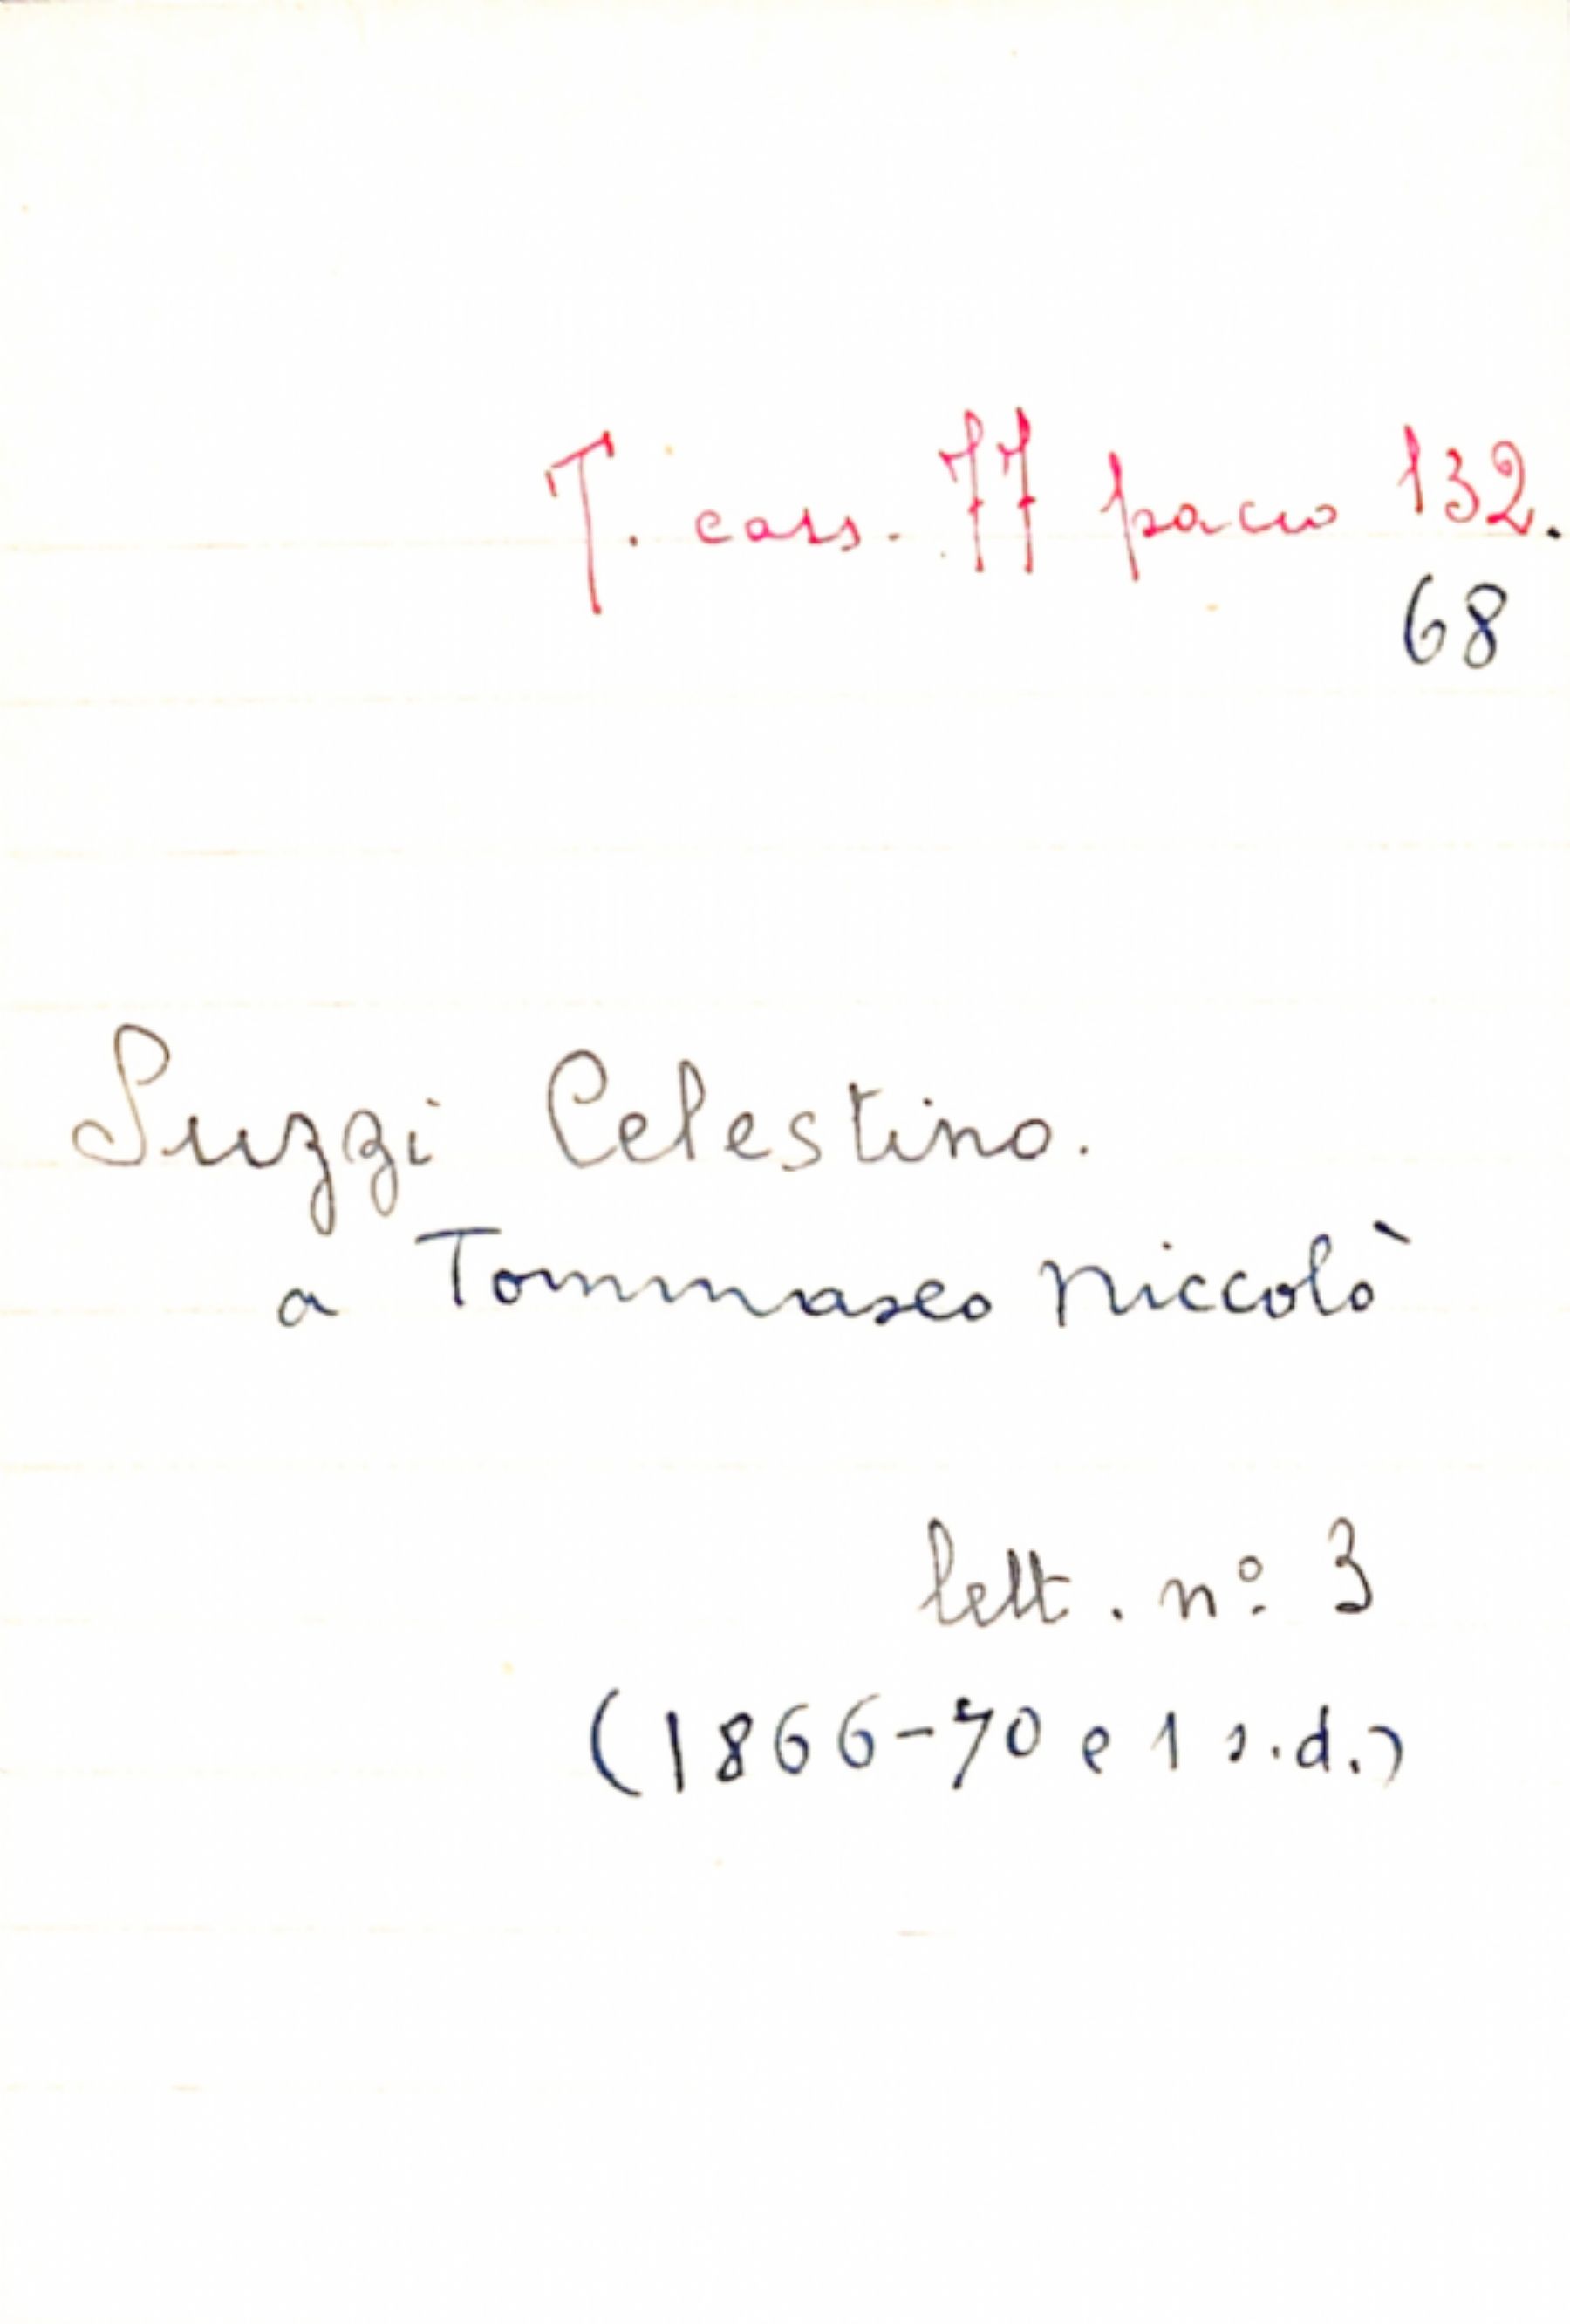 T. cass. 77 pacco 132.
68
Suzzi Celestino.
a Tommaseo Niccolò
lett. nº 3
(1866-70 e 1 s.d.)